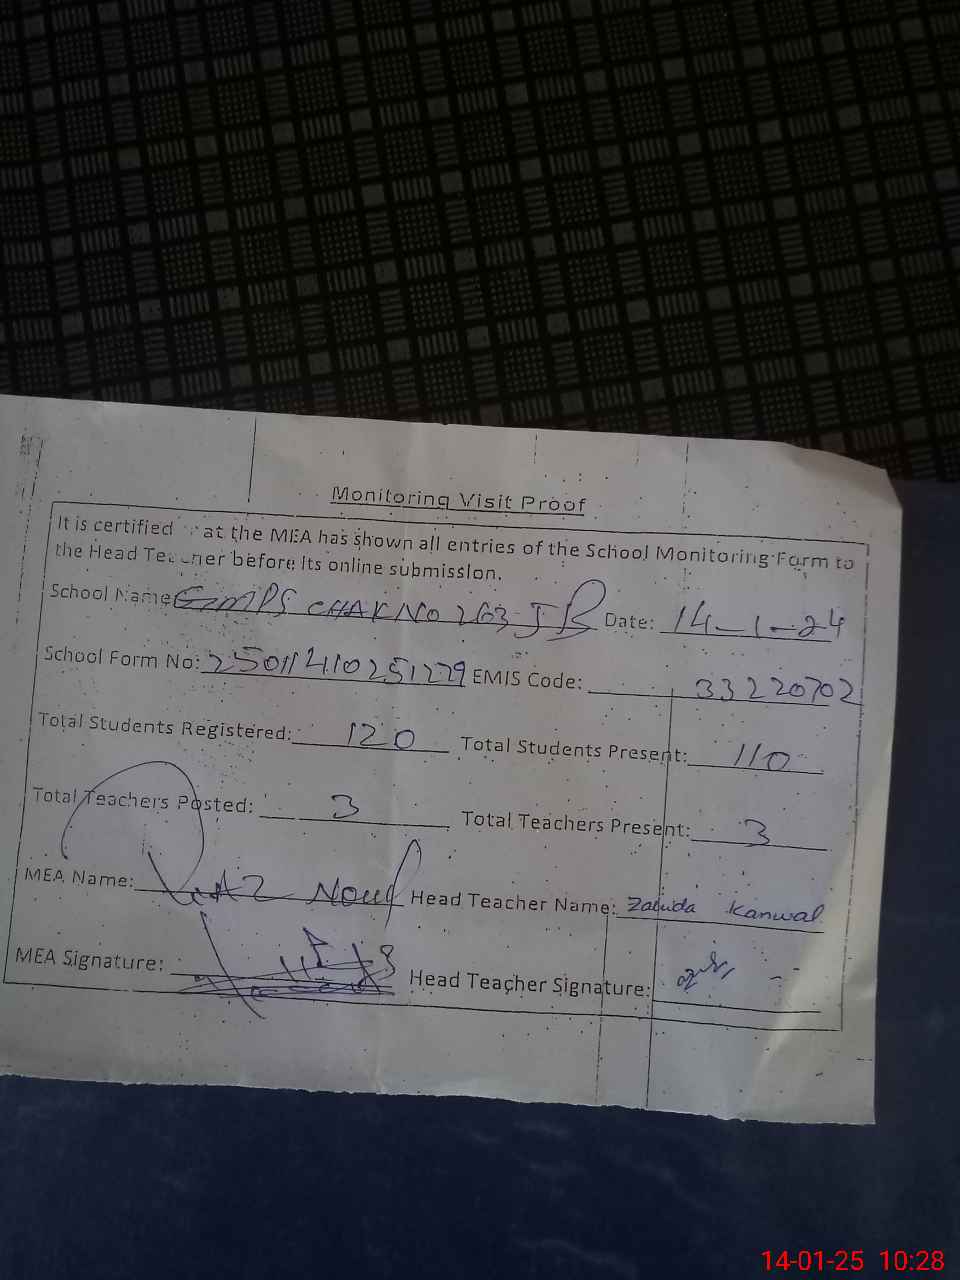 Monitoring Visit Proof
It is certified at the MEA has shown all entries of the School Monitoring Form to
the Head Teacher before its online submission.
School Name GMPS CHAK NO 263 JB Date: 14-1-24
School Form No: 25011410251229 EMIS Code: 33220702
Total Students Registered: 120 Total Students Present: 110
Total Teachers Posted: 3 Total Teachers Present: 3
MEA Name: Head Teacher Name: Zahida Kanwal
MEA Signature: Head Teacher Signature:
14-01-25 10:28